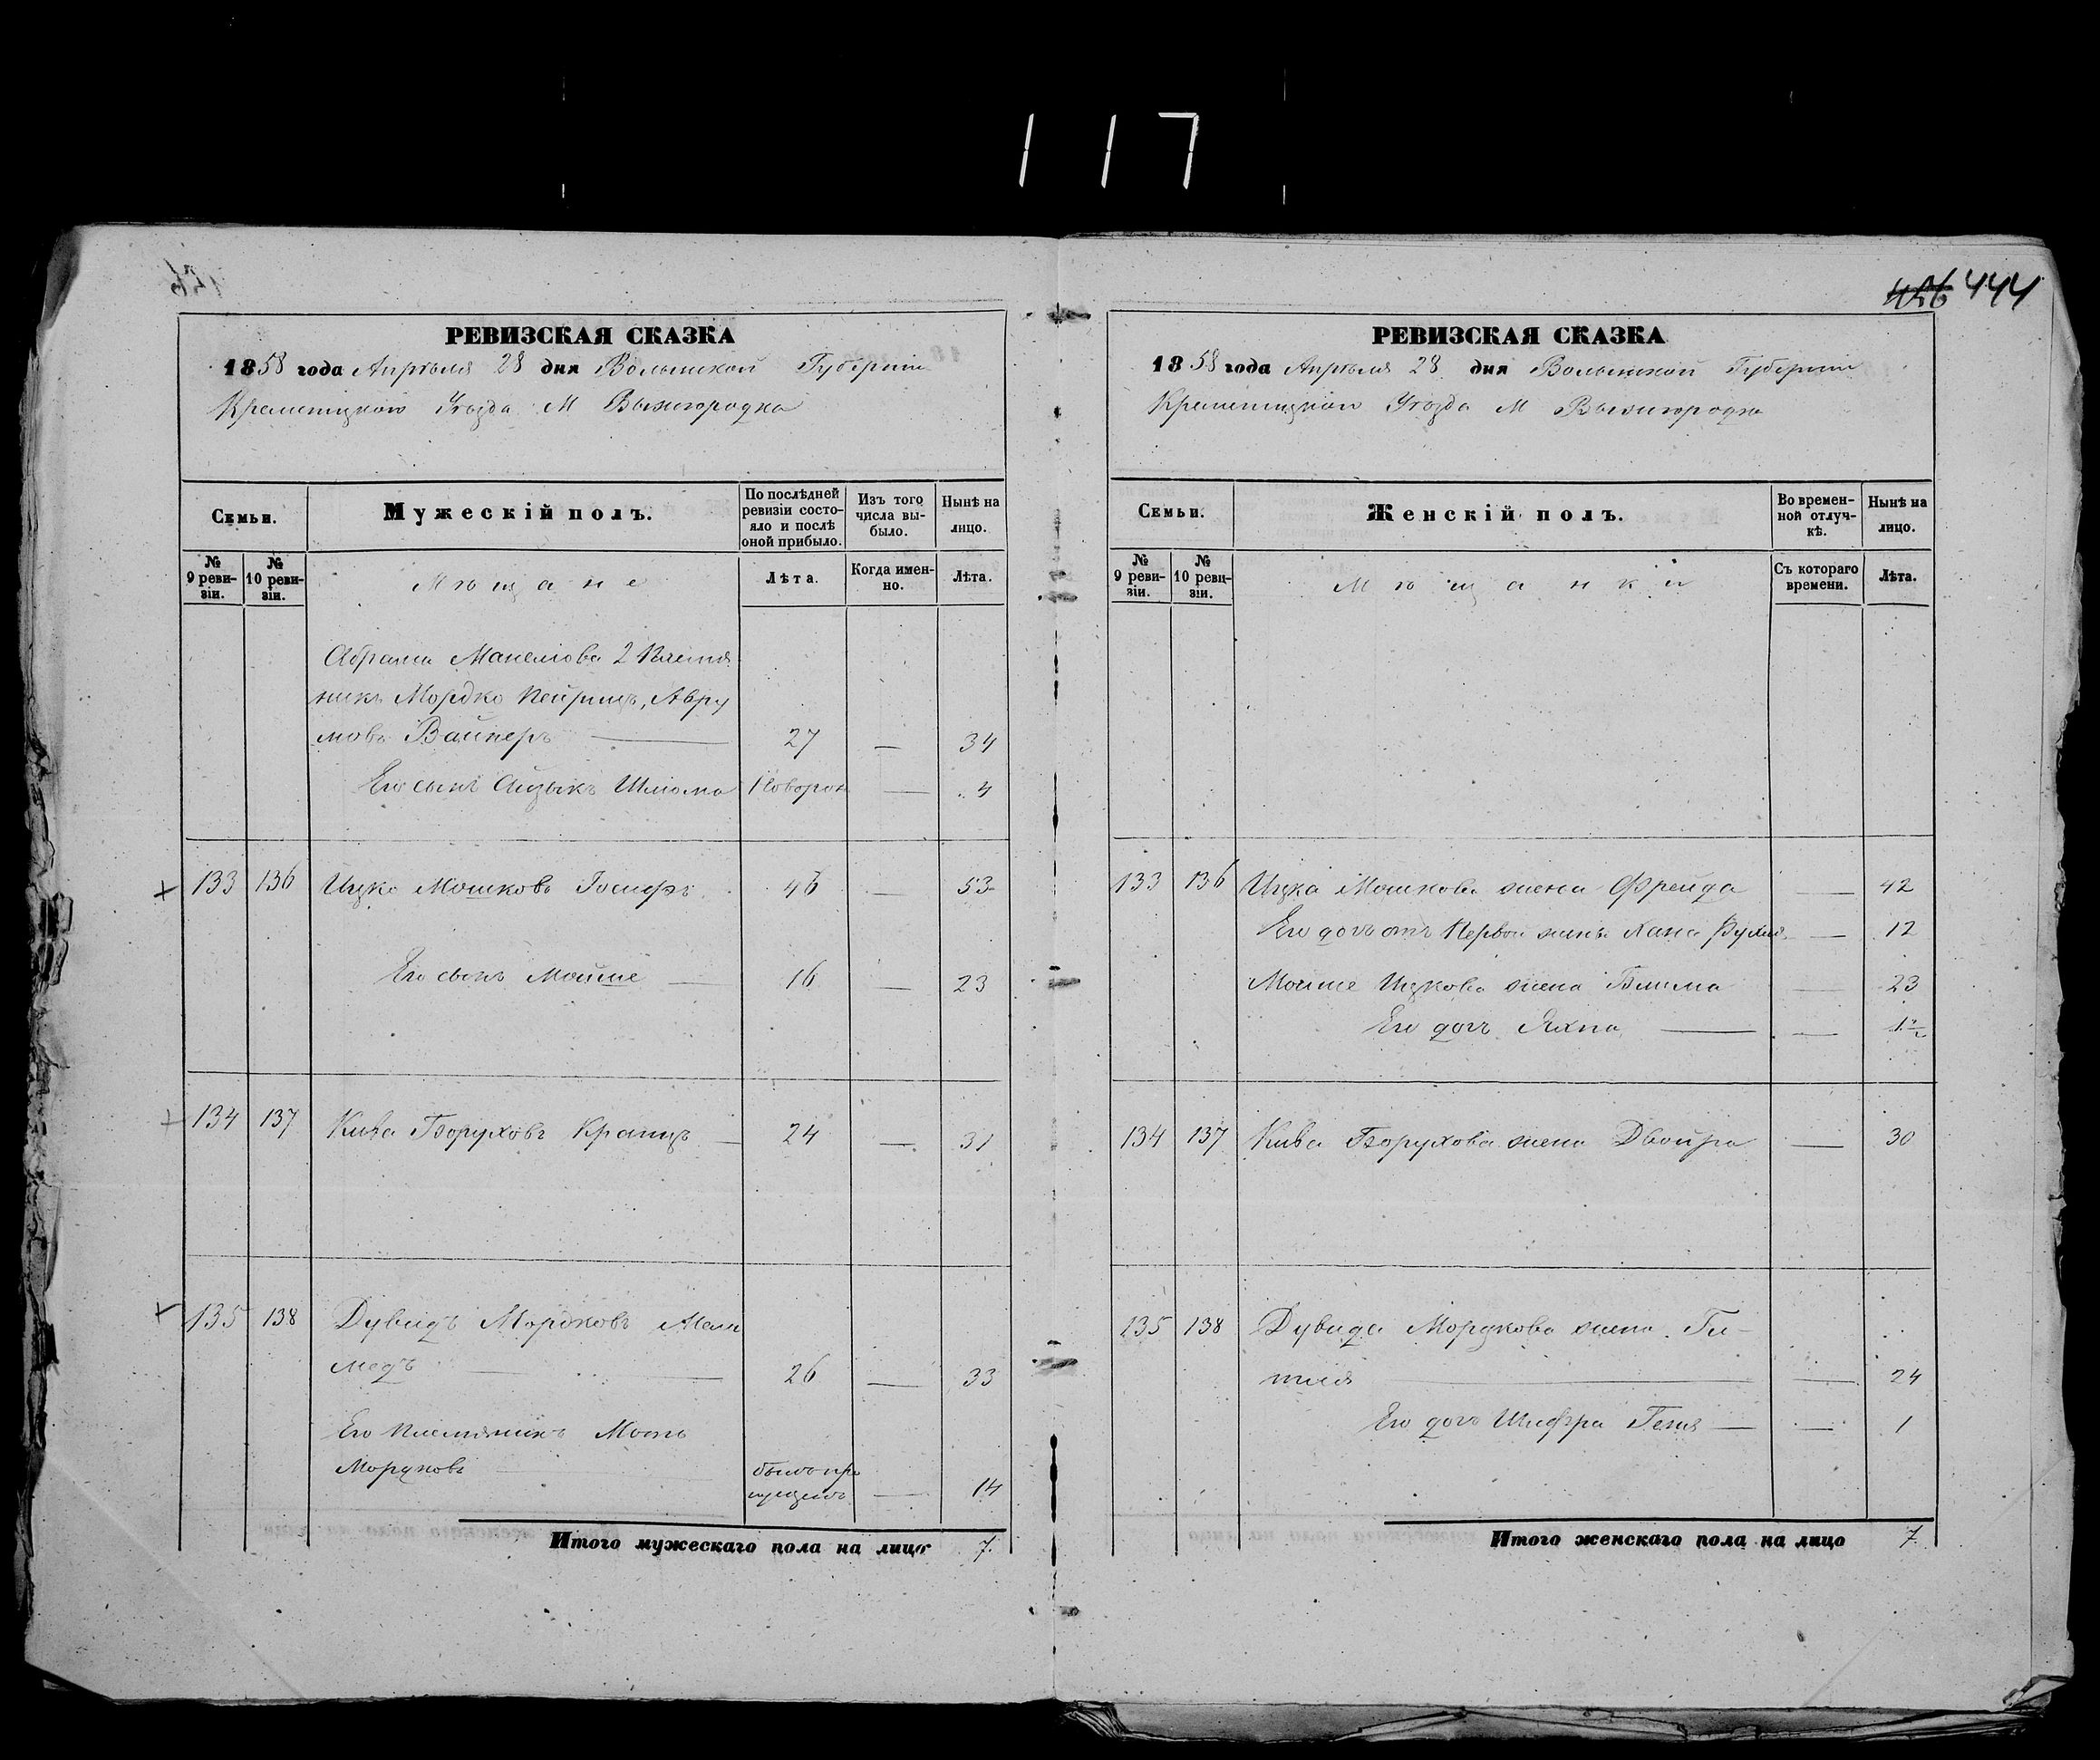 117
456 444
РЕВИЗСКАЯ СКАЗКА
1858 года Апрѣля 28 дня Волынской Губерніи
Кременецкого Уѣзда М Вышгородка
Семьи.
Мужескій полъ.
По послѣдней ревизіи состояло и послѣ оной прибыло.
Изъ того числа выбыло.
Нынѣ на лицо.
№ 9 ревизіи.
№ 10 ревизіи.
Мѣщане
Лѣта.
Когда именно.
Лѣта.
Абрама Манелиова 2 Племян
никъ Мордко Авру
мовъ Вайнеръ 27 — 34
Его сынъ Айзыкъ Шлиома Новорож — 4
133 136 Ицко Мошковъ 46 — 53
Его сынъ Мойше — 16 — 23
134 137 Кива Боруховъ Кранцъ — 24 — 31
135 138 Дувидъ Мордковъ Мела
медъ — 26 — 33
Его племянникъ Мота
Мордковъ былъ про
пущенъ — 14
Итого мужескаго пола на лицо 7.
РЕВИЗСКАЯ СКАЗКА
1858 года Апрѣля 28 дня Волынской Губерніи
Кременецкого Уѣзда М Вышгородка
Семьи.
Женскій полъ.
Во временной отлучкѣ.
Нынѣ на лицо.
№ 9 ревизіи.
№ 10 ревизіи.
Мѣщанки
Съ котораго времени.
Лѣта.
133 136 Ицка Мошкова жена Фрейда — 42
Его дочь отъ первой жены Хана Рухля — 12
Мойше Ицкова жена Блима — 23
Его дочь Яхна — — 1½
134 137 Кива Борухова жена Двойра — 30
135 138 Дувида Мордкова жена Ги-
тля — — 24
Его дочь Шифра Геня — — 1
Итого женскаго пола на лицо 7.